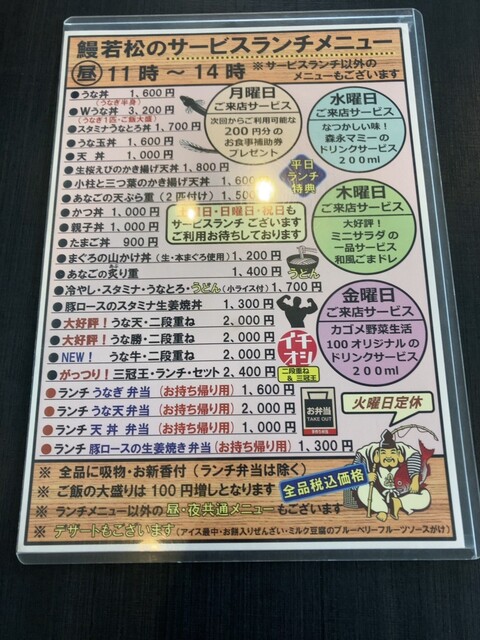 鰻若松のサービスランチメニュー
昼 11時～14時 ※サービスランチ以外の
メニューもございます
●うな丼 1,600円
(うなぎ半身)
●Wうな丼 3,200円
(うなぎ1匹・ご飯大盛)
●スタミナうなとろ丼 1,700円
●うな玉丼 1,600円
●天丼 1,000円
●生桜えびのかき揚げ天丼 1,800円
●小柱と三つ葉のかき揚げ天丼 1,600
●あなごの天ぷら重(2匹付け) 1,50
●かつ丼 1,000円
●親子丼 1,000円
●たまご丼 900円
●まぐろの山かけ丼(生・本まぐろ使用) 1,200円
●あなごの炙り重 1,400円
●冷やし・スタミナ・うなとろ・うどん(小ライス付) 1,700円
●豚ロースのスタミナ生姜焼丼 1,300円
●大好評!うな天・二段重ね 2,000円
●大好評!うな勝・二段重ね 2,000円
●NEW!うな牛・二段重ね 2,000円
●がっつり!三冠王・ランチ・セット 2,400円
●ランチ うなぎ 弁当(お持ち帰り用) 1,600円
●ランチ うな天 弁当(お持ち帰り用) 2,000円
●ランチ 天丼 弁当(お持ち帰り用) 1,000円
●ランチ 豚ロースの生姜焼き 弁当(お持ち帰り用) 1,300円
月曜日
ご来店サービス
次回からご利用可能な
200円分の
お食事補助券
プレゼント
水曜日
ご来店サービス
なつかしい味!
森永マミーの
ドリンクサービス
200ml
平日
ランチ
特典
日・日曜日・祝日も
サービスランチ ございます
ご利用お待ちしております
木曜日
ご来店サービス
大好評!
ミニサラダの
一品サービス
和風ごまドレ
うどん
金曜日
ご来店サービス
カゴメ野菜生活
100オリジナルの
ドリンクサービス
200ml
イチ
オシ
二段重ね
&三冠王
お弁当
TAKE OUT
火曜日定休
※ 全品に吸物・お新香付(ランチ弁当は除く)
※ ご飯の大盛りは100円増しとなります
全品税込価格
※ ランチメニュー以外の昼・夜共通メニューもございます
※ デザートもございます(アイス最中・お餅入りぜんざい・ミルク豆腐のブルーベリーフルーツソースがけ)